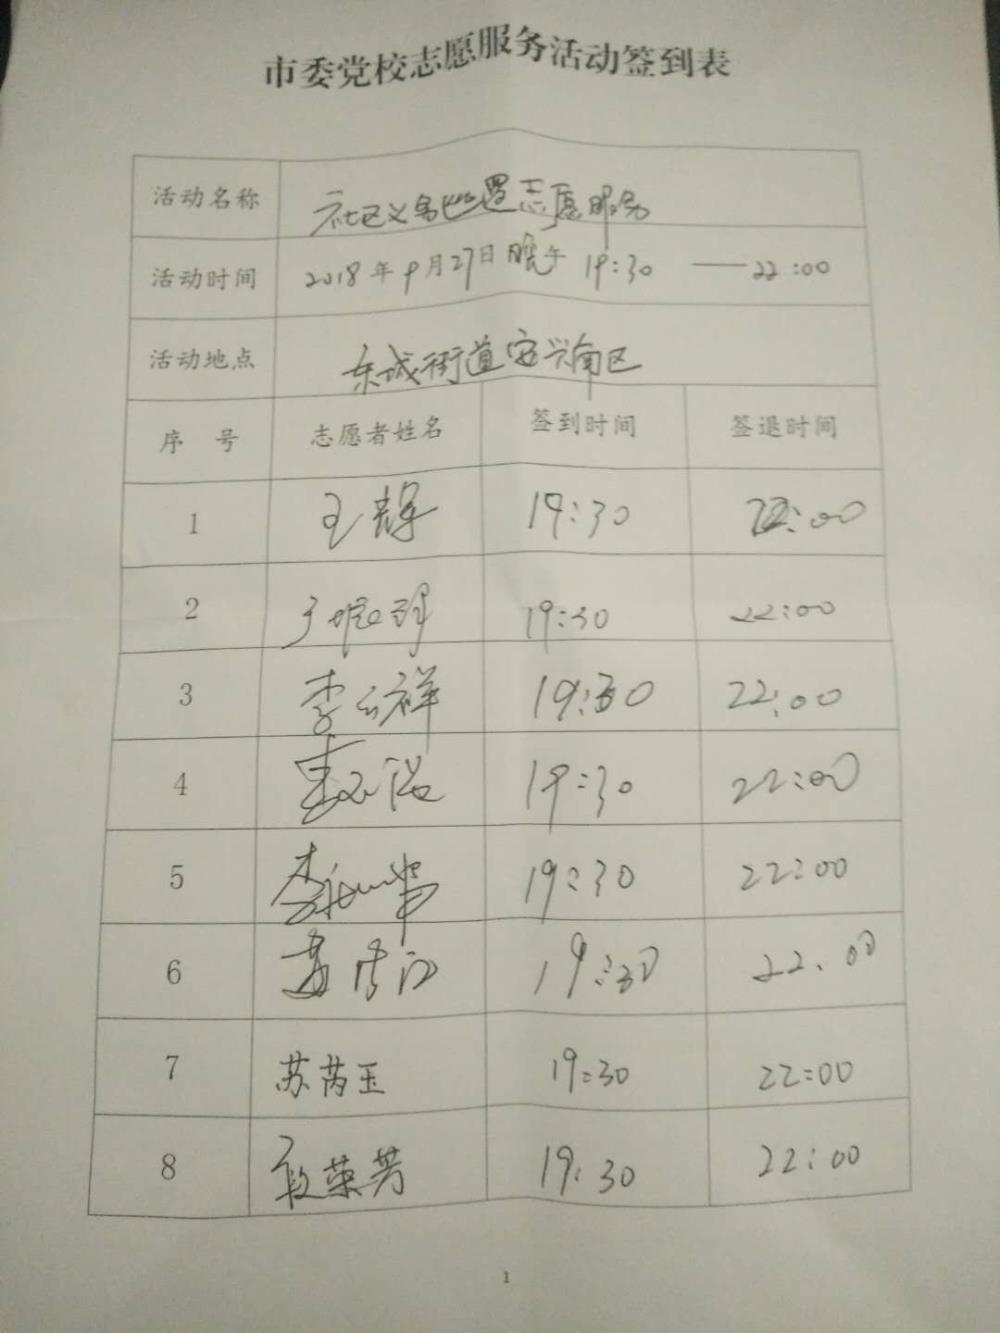 市委党校志愿服务活动签到表
活动名称 社区义务巡逻志愿服务
活动时间 2018年9月27日晚午 19:30 — 22:00
活动地点 东城街道安兴南区
序 号 志愿者姓名 签到时间 签退时间
1 王辉 19:30 22:00
2 19:30 22:00
3 李公祥 19:30 22:00
4 19:30 22:00
5 李 19:30 22:00
6 19:30 22.00
7 苏芮玉 19:30 22:00
8 段荣芳 19:30 22:00
1